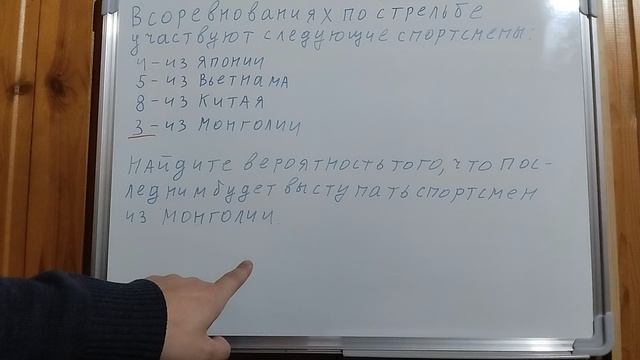 В соревнованиях по стрельбе
участвуют следующие спортсмены:
4 - из Японии
5 - из Вьетнама
8 - из Китая
3 - из Монголии
Найдите вероятность того, что пос-
ледним будет выступать спортсмен
из Монголии.